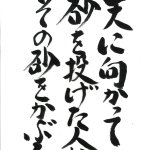 天に向かって
砂を投げた人は
その砂をかぶる